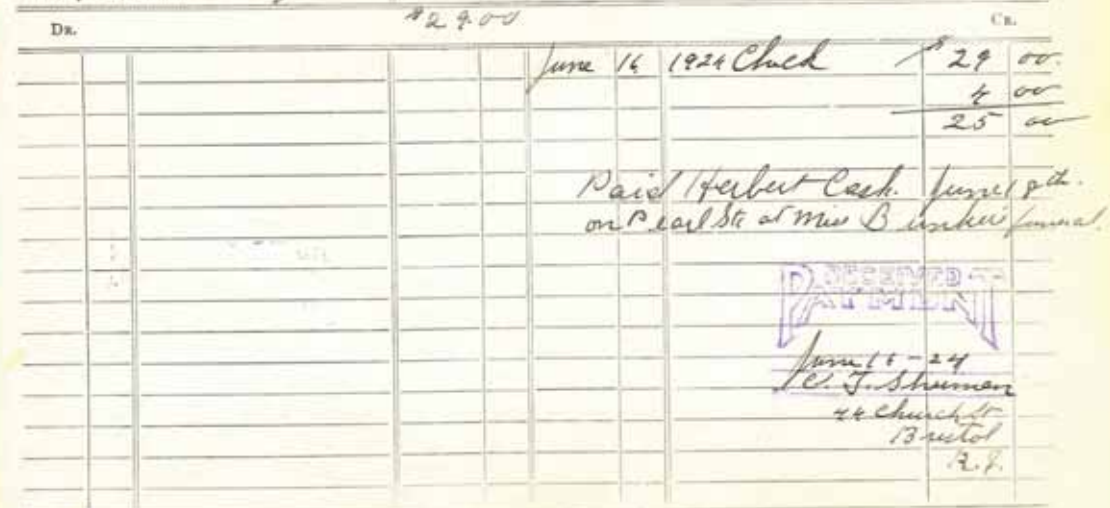 DR. $29.00 CR.
June 16 1924 Check $29 00
4 00
25 00
Paid Herbert Cash. June 18th.
on Pearl St. at Miss Bunker's funeral.
RECEIVED
PAYMENT
June 16-24
C. J. Shuman
44 Church St
Bristol
R.I.